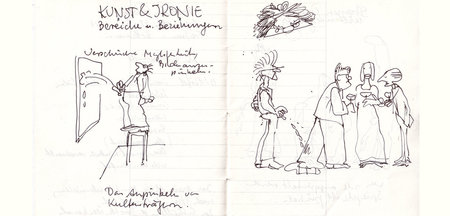 KUNST & IRONIE
Bereiche u. Beziehungen
Verschiedene Möglichkeiten
Das Anpinkeln von
Kulturträgern.